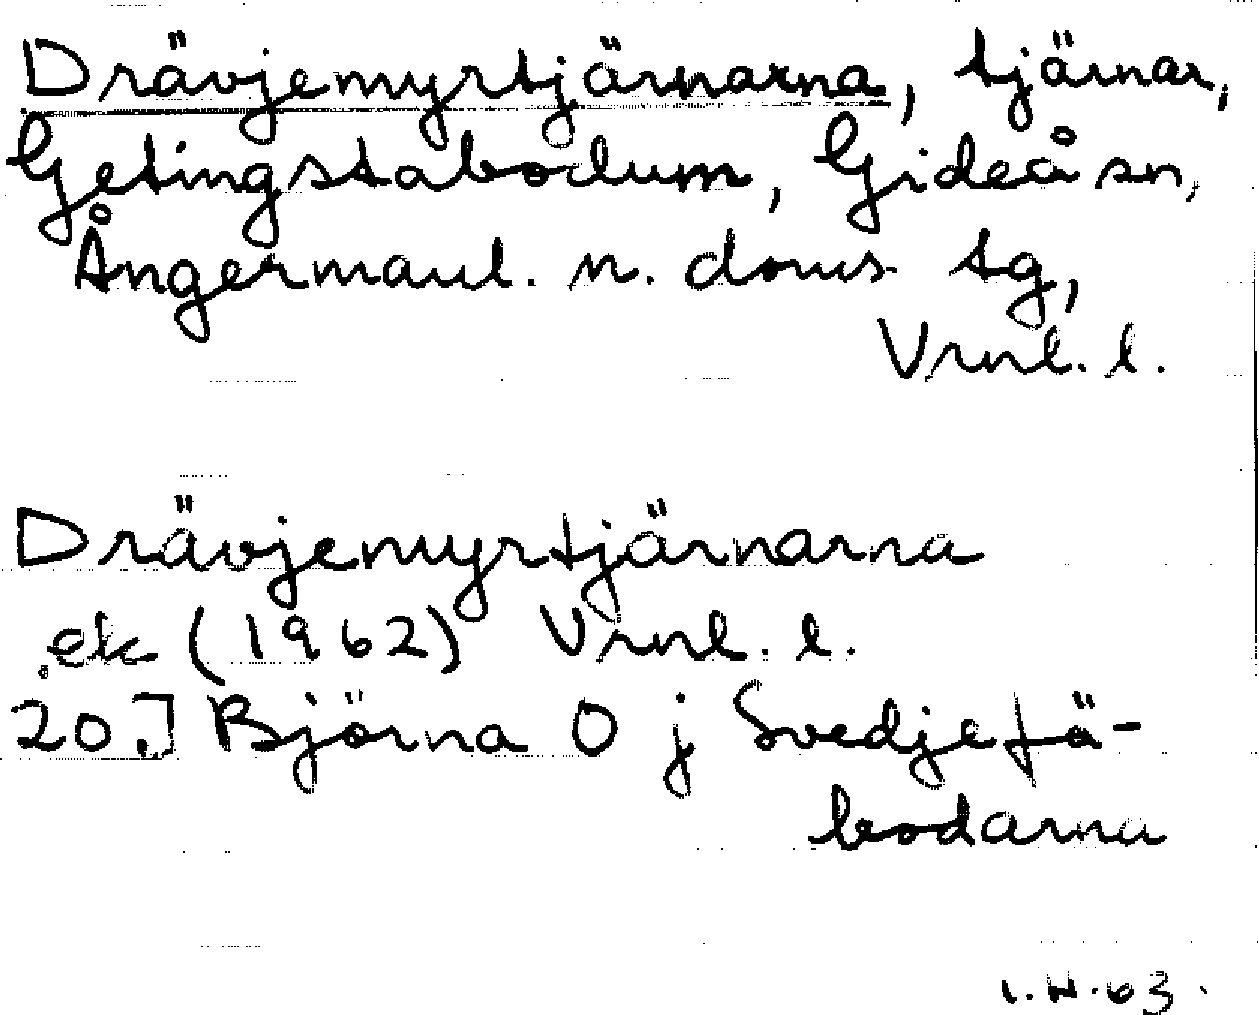 Drävjemyrtjärnarna, tjärnar,
Getingstabodum, Gideå sn,
Ångermanl. n. doms. tg,
Vrnl. l.
Drävjemyrtjärnarna
ek (1962) Vrnl. l.
20J Björna O j Svedjefä-
bodarna
I.H.63.